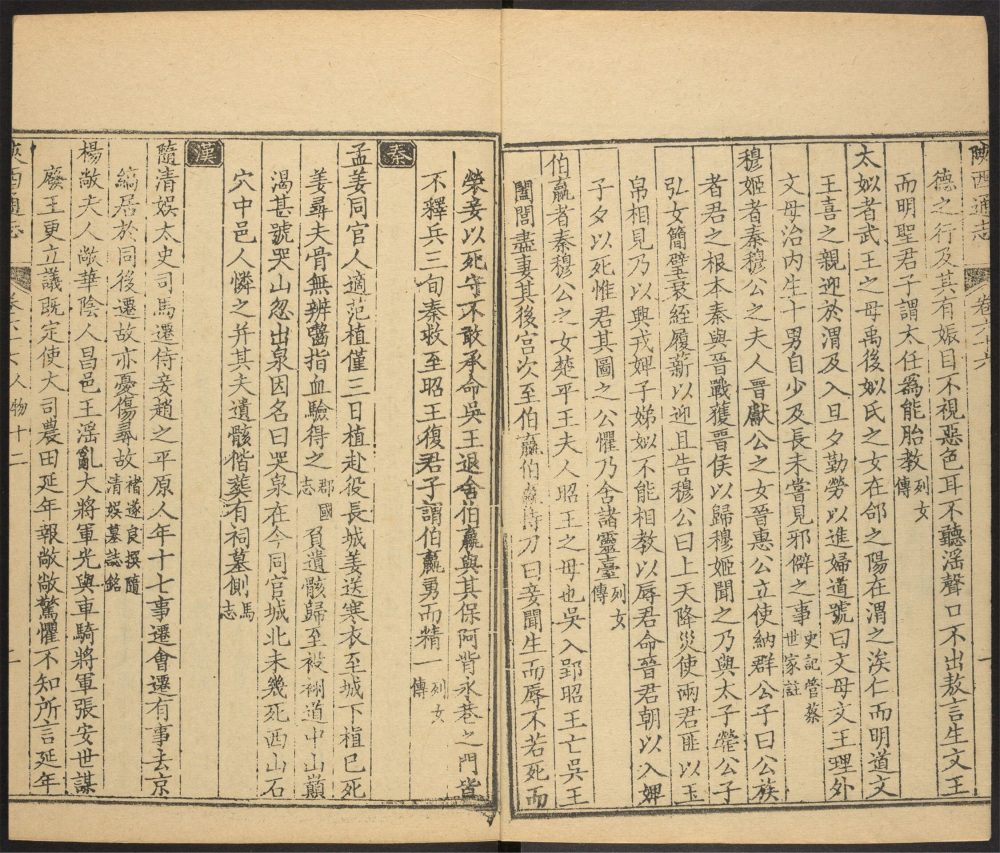 陝西通志 卷六十六
德之行及其有娠目不視惡色耳不聽滛聲口不出敖言生文王
而明聖君子謂太任爲能胎教列女傳
太姒者武王之母禹後姒氏之女在郃之陽在渭之涘仁而明道文
王喜之親迎於渭及入旦夕勤勞以進婦道號曰文母文王理外
文母治内生十男自少及長未嘗見邪僻之事史記管蔡世家註
穆姬者秦穆公之夫人晉獻公之女晉惠公立使納群公子曰公族
者君之根本秦與晉戰獲晉侯以歸穆姬聞之乃與太子罃公子
弘女簡璧衰絰履薪以迎且告穆公曰上天降災使兩君匪以玉
帛相見乃以興戎婢子娣姒不能相教以辱君命晉君朝以入婢
子夕以死惟君其圖之公懼乃舍諸靈臺列女傳
伯嬴者秦穆公之女楚平王夫人昭王之母也吳入郢昭王亡吳王
闔閭盡妻其後宫次至伯嬴伯嬴持刀曰妾聞生而辱不若死而
榮妾以死守不敢承命吳王退舍伯嬴與其保阿背永巷之門皆
不釋兵三旬秦救至昭王復君子謂伯嬴勇而精一列女傳
秦
孟姜同官人適范植僅三日植赴役長城姜送寒衣至城下植已死
姜尋夫骨無辨嚙指血驗得之郡國志負遺骸歸至
道中山巔
渴甚號哭山忽出泉因名曰哭泉在今同官城北未幾死西山石
穴中邑人憐之并其夫遺骸偕葬有祠墓側馬志
漢
隨清娛太史司馬遷侍妾趙之平原人年十七事遷會遷有事去京
縞居於同後遷故亦憂傷尋故褚遂良撰隨清娛墓誌銘
楊敞夫人敞華陰人昌邑王滛亂大將軍光與車騎將軍張安世謀
廢王更立議既定使大司農田延年報敞敞驚懼不知所言延年
陝西通志 卷六十六人物十二